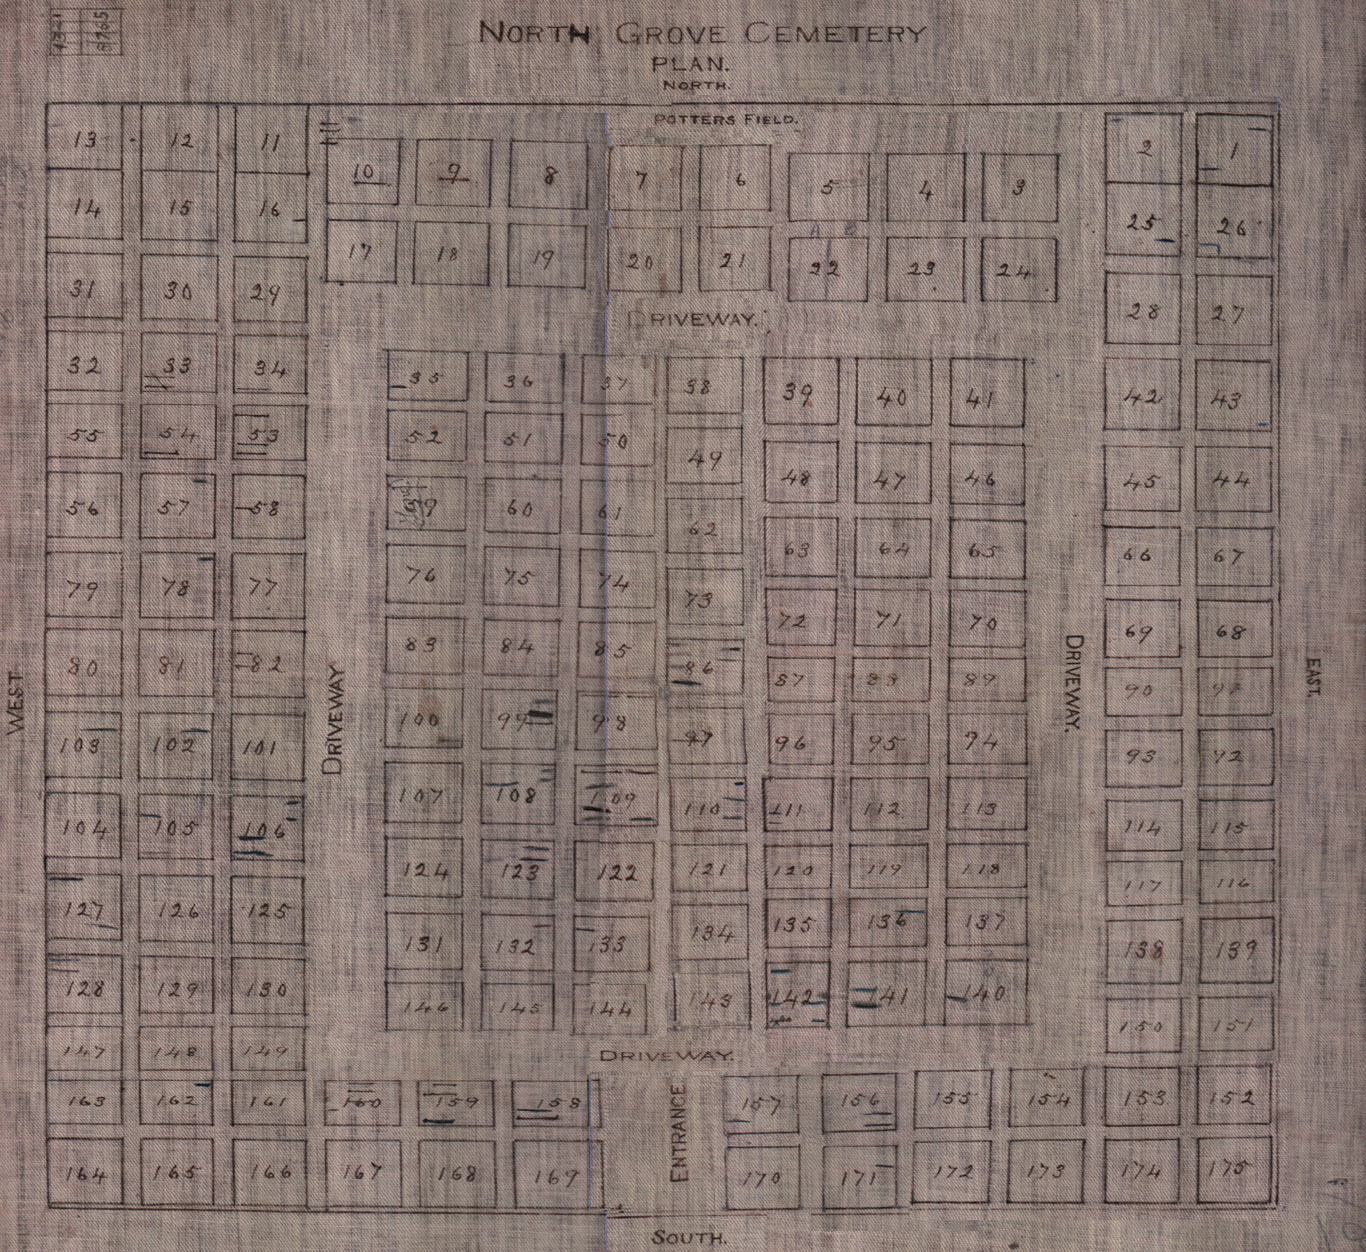 NORTH GROVE CEMETERY
PLAN.
NORTH.
POTTERS FIELD.
13 12 11 2 1
10 9 8 7 6 5 4 3
14 15 16 25 26
A B
17 18 19 20 21 22 23 24
31 30 29 28 27
DRIVEWAY.
32 33 34 35 36 37 38 39 40 41 42 43
55 54 53 52 51 50 49 48 47 46 45 44
56 57 58 59 60 61 62 63 64 65 66 67
79 78 77 76 75 74 73 72 71 70 69 68
80 81 82 83 84 85 86 87 88 89 90 91
WEST
DRIVEWAY
DRIVEWAY.
EAST.
103 102 101 100 99 98 97 96 95 94 93 92
104 105 106 107 108 109 110 111 112 113 114 115
127 126 125 124 123 122 121 120 119 118 117 116
128 129 130 131 132 133 134 135 136 137 138 139
147 148 149 146 145 144 143 142 141 140 150 151
DRIVEWAY.
163 162 161 160 159 158 157 156 155 154 153 152
ENTRANCE
164 165 166 167 168 169 170 171 172 173 174 175
SOUTH.